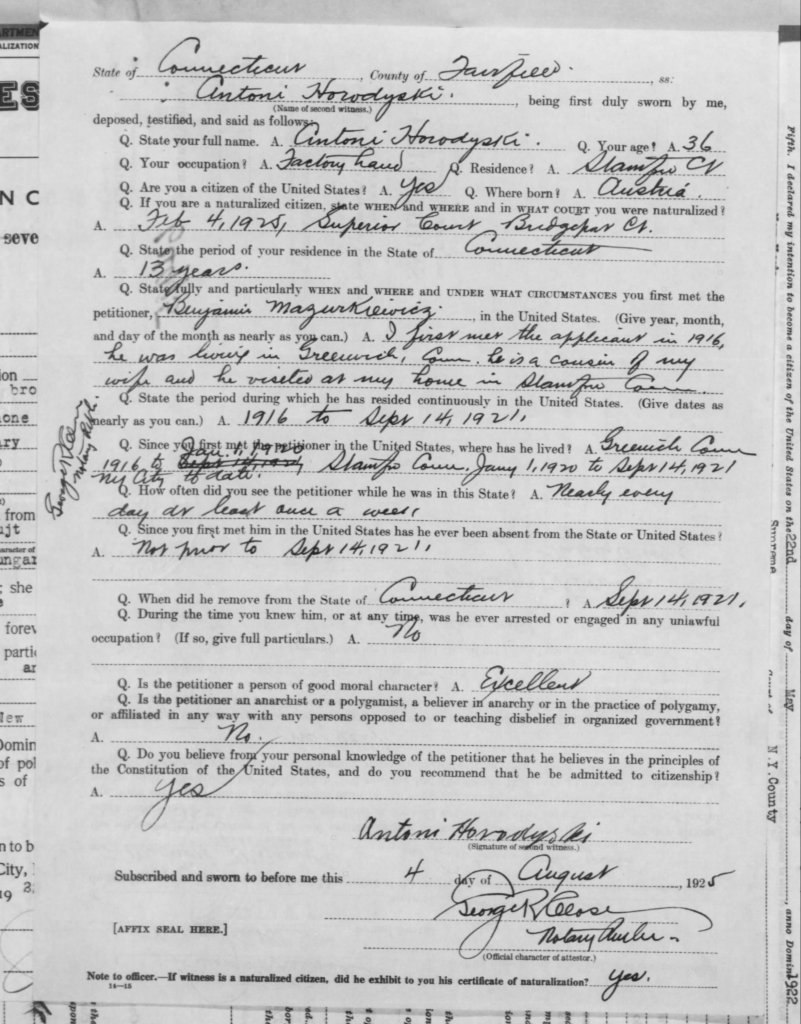 State of Connecticut, County of Fairfield, ss:
Antoni Horodyski., being first duly sworn by me,
(Name of second witness.)
deposed, testified, and said as follows:
Q. State your full name. A. Antoni Horodyski. Q. Your age? A. 36
Q. Your occupation? A. Factory hand Q. Residence? A. Stamford Ct
Q. Are you a citizen of the United States? A. Yes Q. Where born? A. Austria.
Q. If you are a naturalized citizen, state WHEN and WHERE and in WHAT COURT you were naturalized?
A. Feb 4, 1925, Superior Court Bridgeport Ct.
Q. State the period of your residence in the State of Connecticut
A. 13 years.
Q. State fully and particularly WHEN and WHERE and UNDER WHAT CIRCUMSTANCES you first met the
petitioner, Benjamin Mazurkiewicz, in the United States. (Give year, month,
and day of the month as nearly as you can.) A. I first met the applicant in 1916,
he was living in Greenwich, Conn. he is a cousin of my
wife and he viseted at my home in Stamford Conn.
Q. State the period during which he has resided continuously in the United States. (Give dates as
nearly as you can.) A. 1916 to Sept 14, 1921.
Q. Since you first met the petitioner in the United States, where has he lived? A. Greenwich Conn
Jan. 1, 1920
1916 to Sept 14, 1921, Stamford Conn. Jany 1, 1920 to Sept 14, 1921
NY City to date.
Q. How often did you see the petitioner while he was in this State? A. Nearly every
day at least once a week.
Q. Since you first met him in the United States has he ever been absent from the State or United States?
A. Not prior to Sept 14, 1921.
Q. When did he remove from the State of Connecticut? A Sept 14, 1921.
Q. During the time you knew him, or at any time, was he ever arrested or engaged in any unlawful
occupation? (If so, give full particulars.) A. No
Q. Is the petitioner a person of good moral character? A. Excellent
Q. Is the petitioner an anarchist or a polygamist, a believer in anarchy or in the practice of polygamy,
or affiliated in any way with any persons opposed to or teaching disbelief in organized government?
A. No.
Q. Do you believe from your personal knowledge of the petitioner that he believes in the principles of
the Constitution of the United States, and do you recommend that he be admitted to citizenship?
A. Yes
Antoni Horodyski
(Signature of second witness.)
Subscribed and sworn to before me this 4 day of August, 1925
George R Close
[AFFIX SEAL HERE.]
Notary Public
(Official character of attestor.)
Note to officer.—If witness is a naturalized citizen, did he exhibit to you his certificate of naturalization? Yes.
14—15
George R Close
Notary Public
Fifth. I declared my intention to become a citizen of the United States on the 22nd day of May, anno Domini 1922
Supreme
N.Y.County